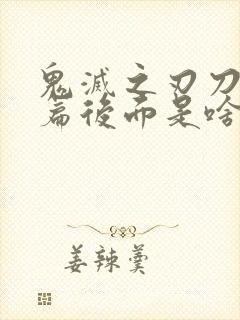 鬼滅之刃刀
篇後而是啥
姜辣羹